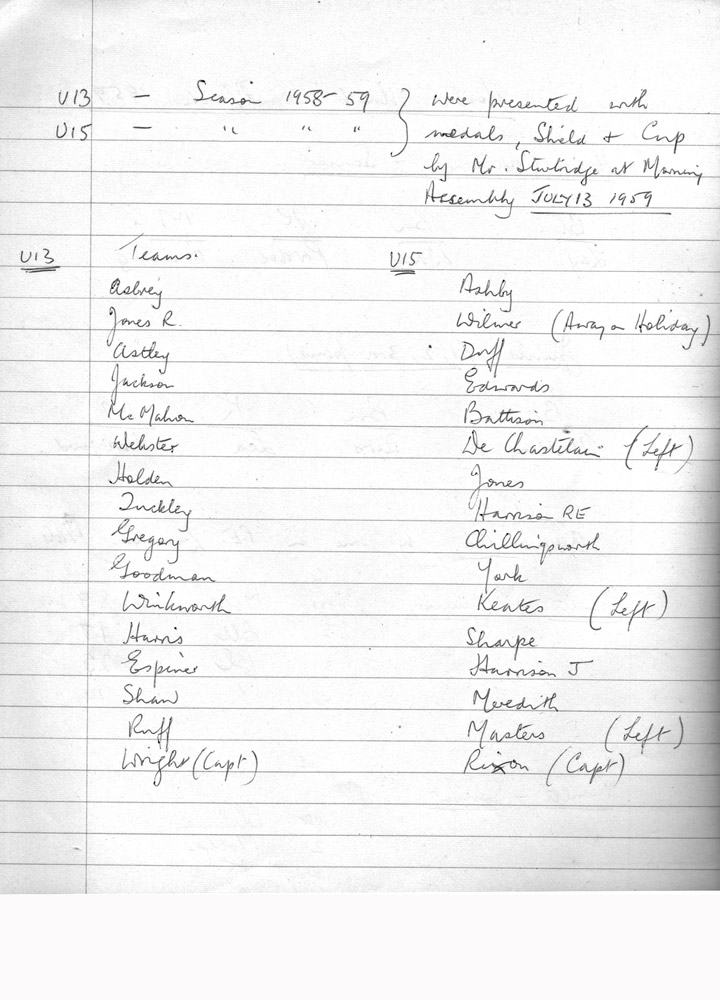 U13 — Season 1958-59 } were presented with
U15 — " " " medals, Shield + Cup
by Mr. Sturbridge at Morning
Assembly JULY 13 1959
U13 Teams. U15
Ashby
Jones R. Wilmer (Away on Holiday)
Astley Duff
Jackson Edwards
McMahon Battison
Webster De Chastelain (Left)
Holden Jones
Tuckley Harrison RE
Gregory Chillingworth
Goodman York
Winkworth Keates (Left)
Harris Sharpe
Espiner Harrison J
Shaw Meredith
Ruff Masters (Left)
Wright (Capt) Rixon (Capt)